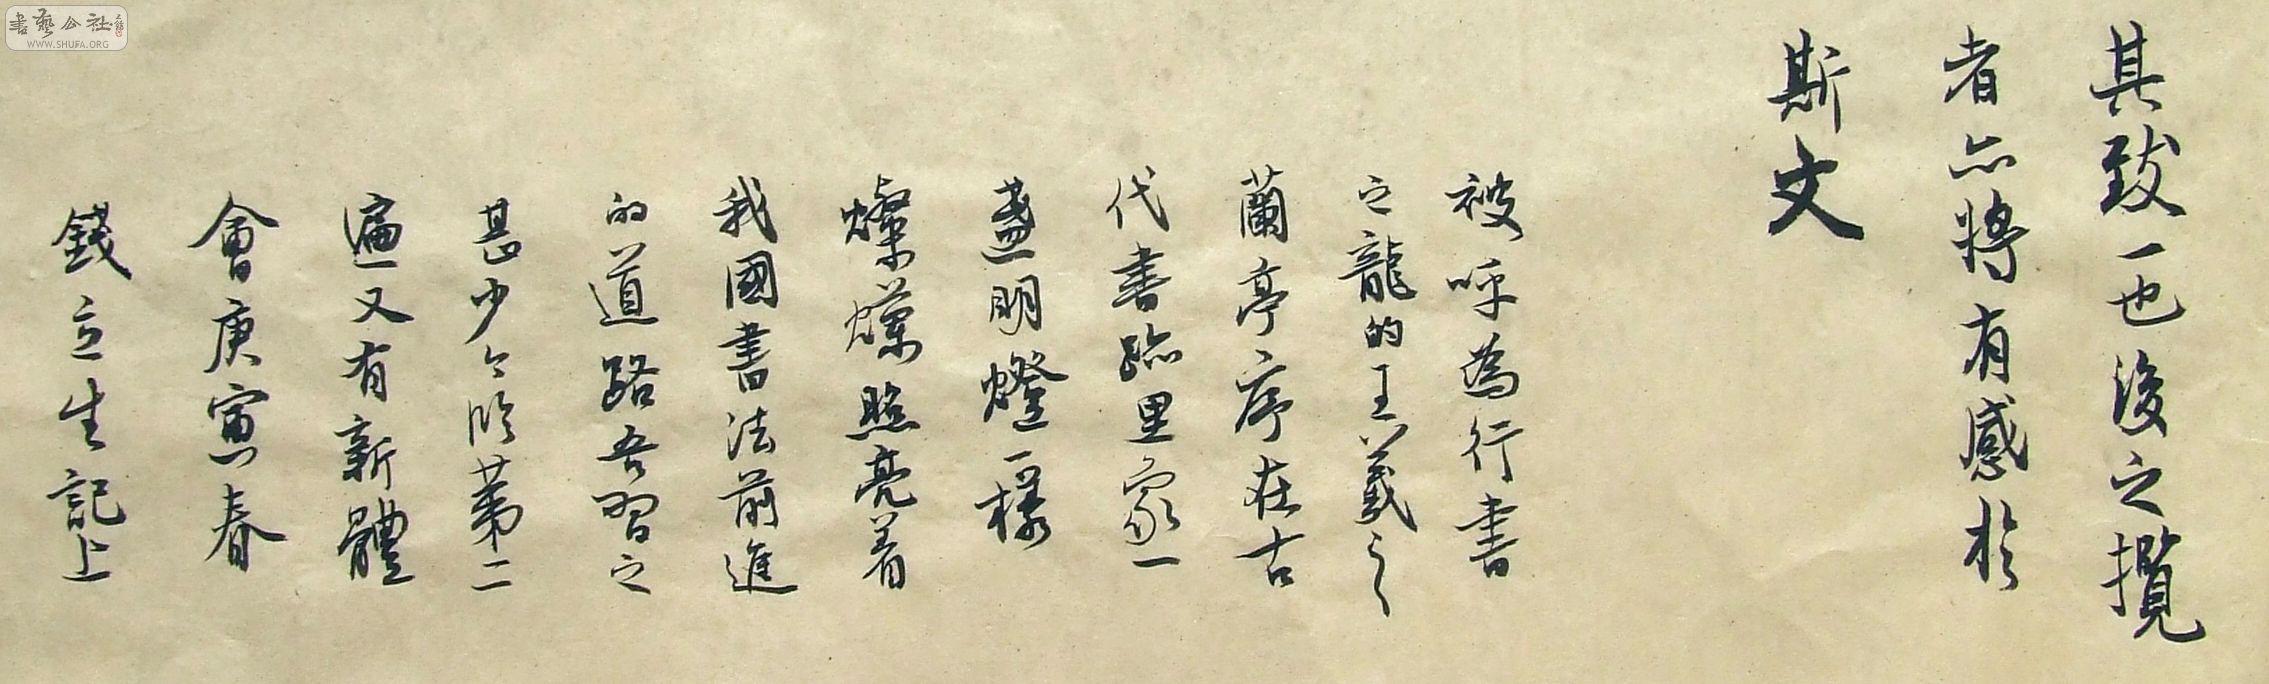 其致一也後之攬
者亦將有感於
斯文
被呼為行書
之龍的王羲之
蘭亭序在古
代書跡里家一
盞明燈一樣
燦爛照亮着
我國書法前進
的道路吾習之
甚少今臨第二
遍又有新體
會庚寅春
錢立生記上
書藝公社
WWW.SHUFA.ORG